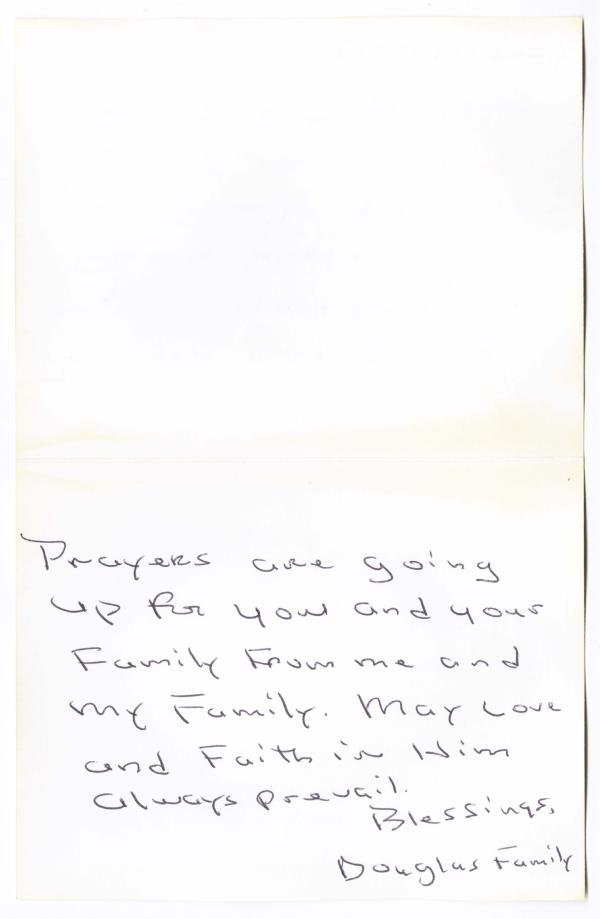 Prayers are going
up for you and your
Family From me and
my Family. May Love
and Faith in Him
always prevail.
Blessings,
Douglas Family